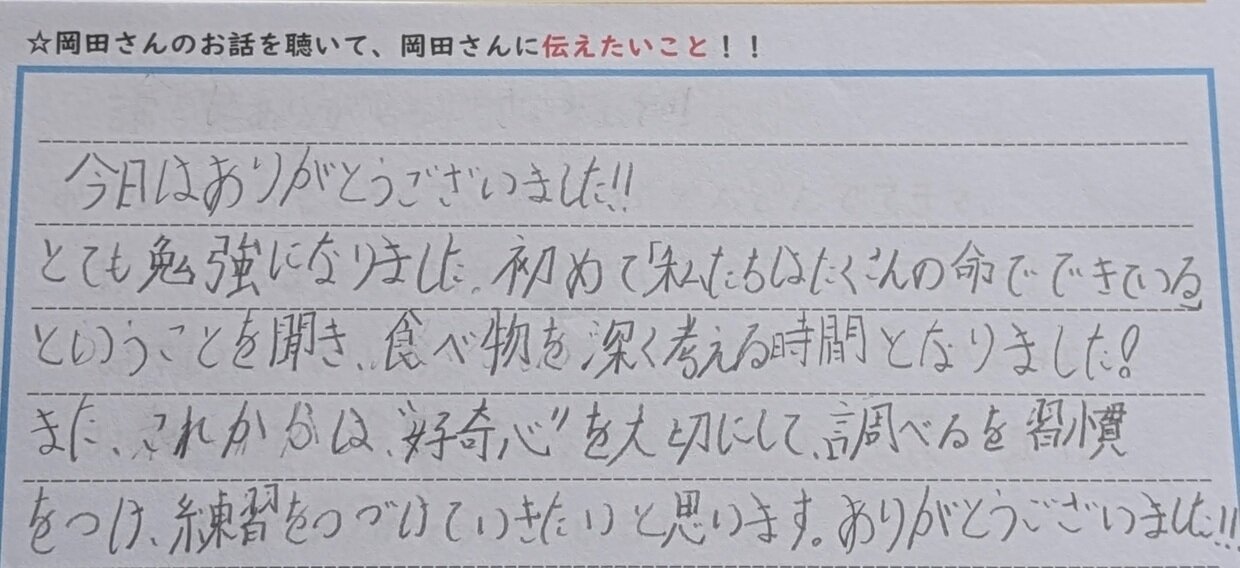 ☆岡田さんのお話を聴いて、岡田さんに伝えたいこと！！
今日はありがとうございました!!
とても勉強になりました。初めて「私たちはたくさんの命でできている」
ということを聞き、食べ物を深く考える時間となりました!
また、これからは、"好奇心"を大切にして、調べるを習慣
をつけ、練習をつづけていきたいと思います。ありがとうございました!!